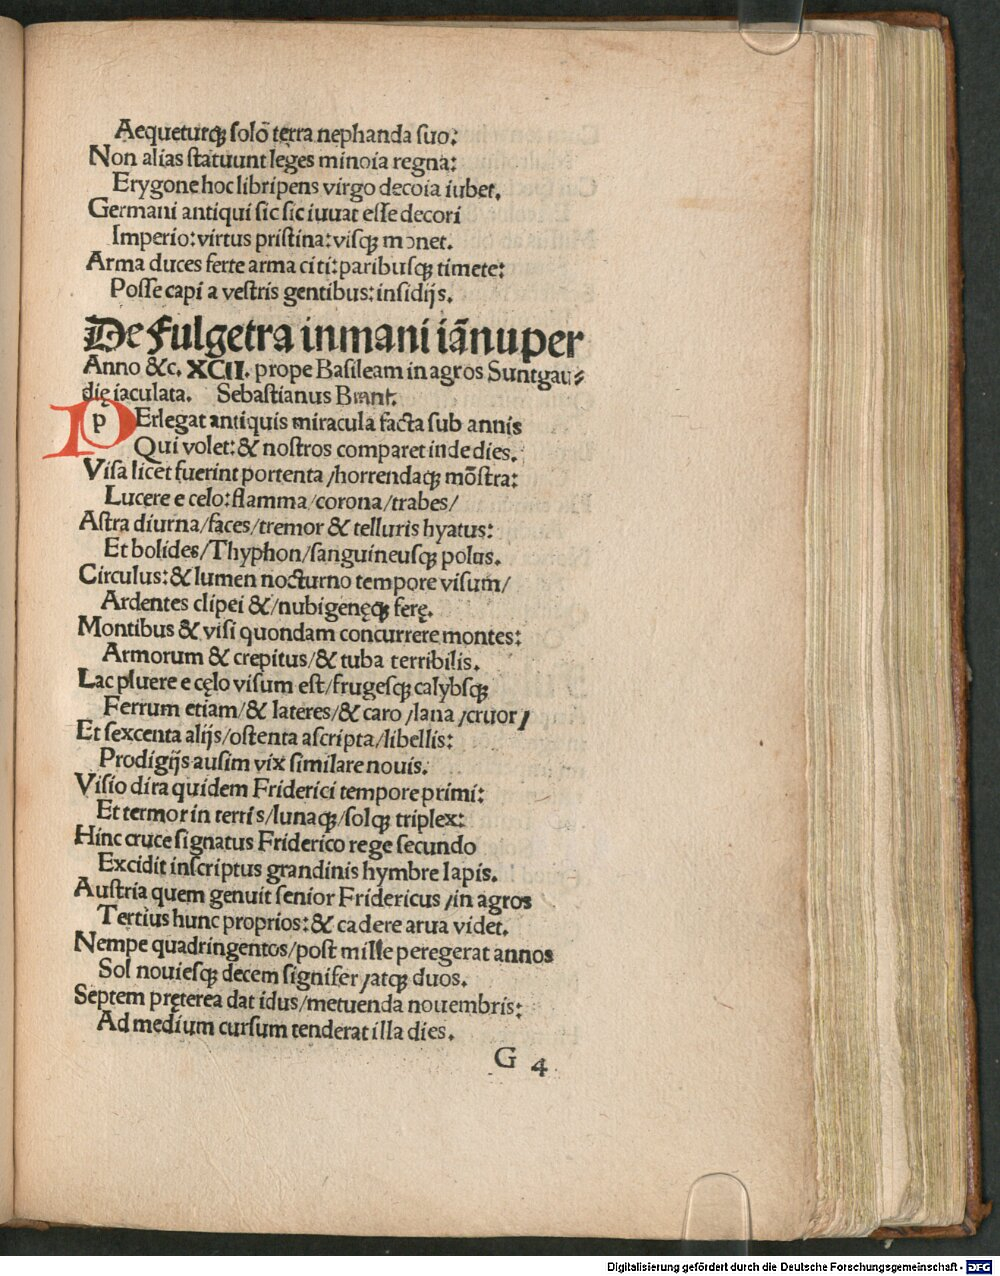 Aequeturqꝫ solō terra nephanda suo:
Non alias statuunt leges minoia regna:
Erygone hoc libripens virgo decoia iubet.
Germani antiqui sic sic iuuat esse decori
Imperio: virtus pristina: visqꝫ monet.
Arma duces ferte arma citi: paribusqꝫ timete:
Posse capi a vestris gentibus: insidijs.
De fulgetra inmani iānuper
Anno &c. XCII. prope Basileam in agros Suntgau⸗
dię iaculata. Sebastianus Brant.
PErlegat antiquis miracula facta sub annis
Qui volet: & nostros comparet inde dies.
Visa licet fuerint portenta /horrendaqꝫ mōstra:
Lucere e celo: flamma/corona/trabes/
Astra diurna/faces/tremor & telluris hyatus:
Et bolides/Thyphon/sanguineusqꝫ polus.
Circulus: & lumen nocturno tempore visum/
Ardentes clipei &/nubigenęqꝫ ferę.
Montibus & visi quondam concurrere montes:
Armorum & crepitus/& tuba terribilis.
Lac pluere e cęlo visum est/frugesqꝫ calybsqꝫ
Ferrum etiam/& lateres/& caro /lana /cruor/
Et sexcenta alijs/ostenta ascripta/libellis:
Prodigijs ausim vix similare nouis.
Visio dira quidem Friderici tempore primi:
Et termor in terris/lunaqꝫ/solqꝫ triplex:
Hinc cruce signatus Friderico rege secundo
Excidit inscriptus grandinis hymbre lapis.
Austria quem genuit senior Fridericus /in agros
Tertius hunc proprios: & cadere arua videt.
Nempe quadringentos/post mille peregerat annos
Sol nouiesqꝫ decem signifer /atqꝫ duos.
Septem pręterea dat idus/metuenda nouembris:
Ad medium cursum tenderat illa dies.
G 4
Digitalisierung gefördert durch die Deutsche Forschungsgemeinschaft - DFG